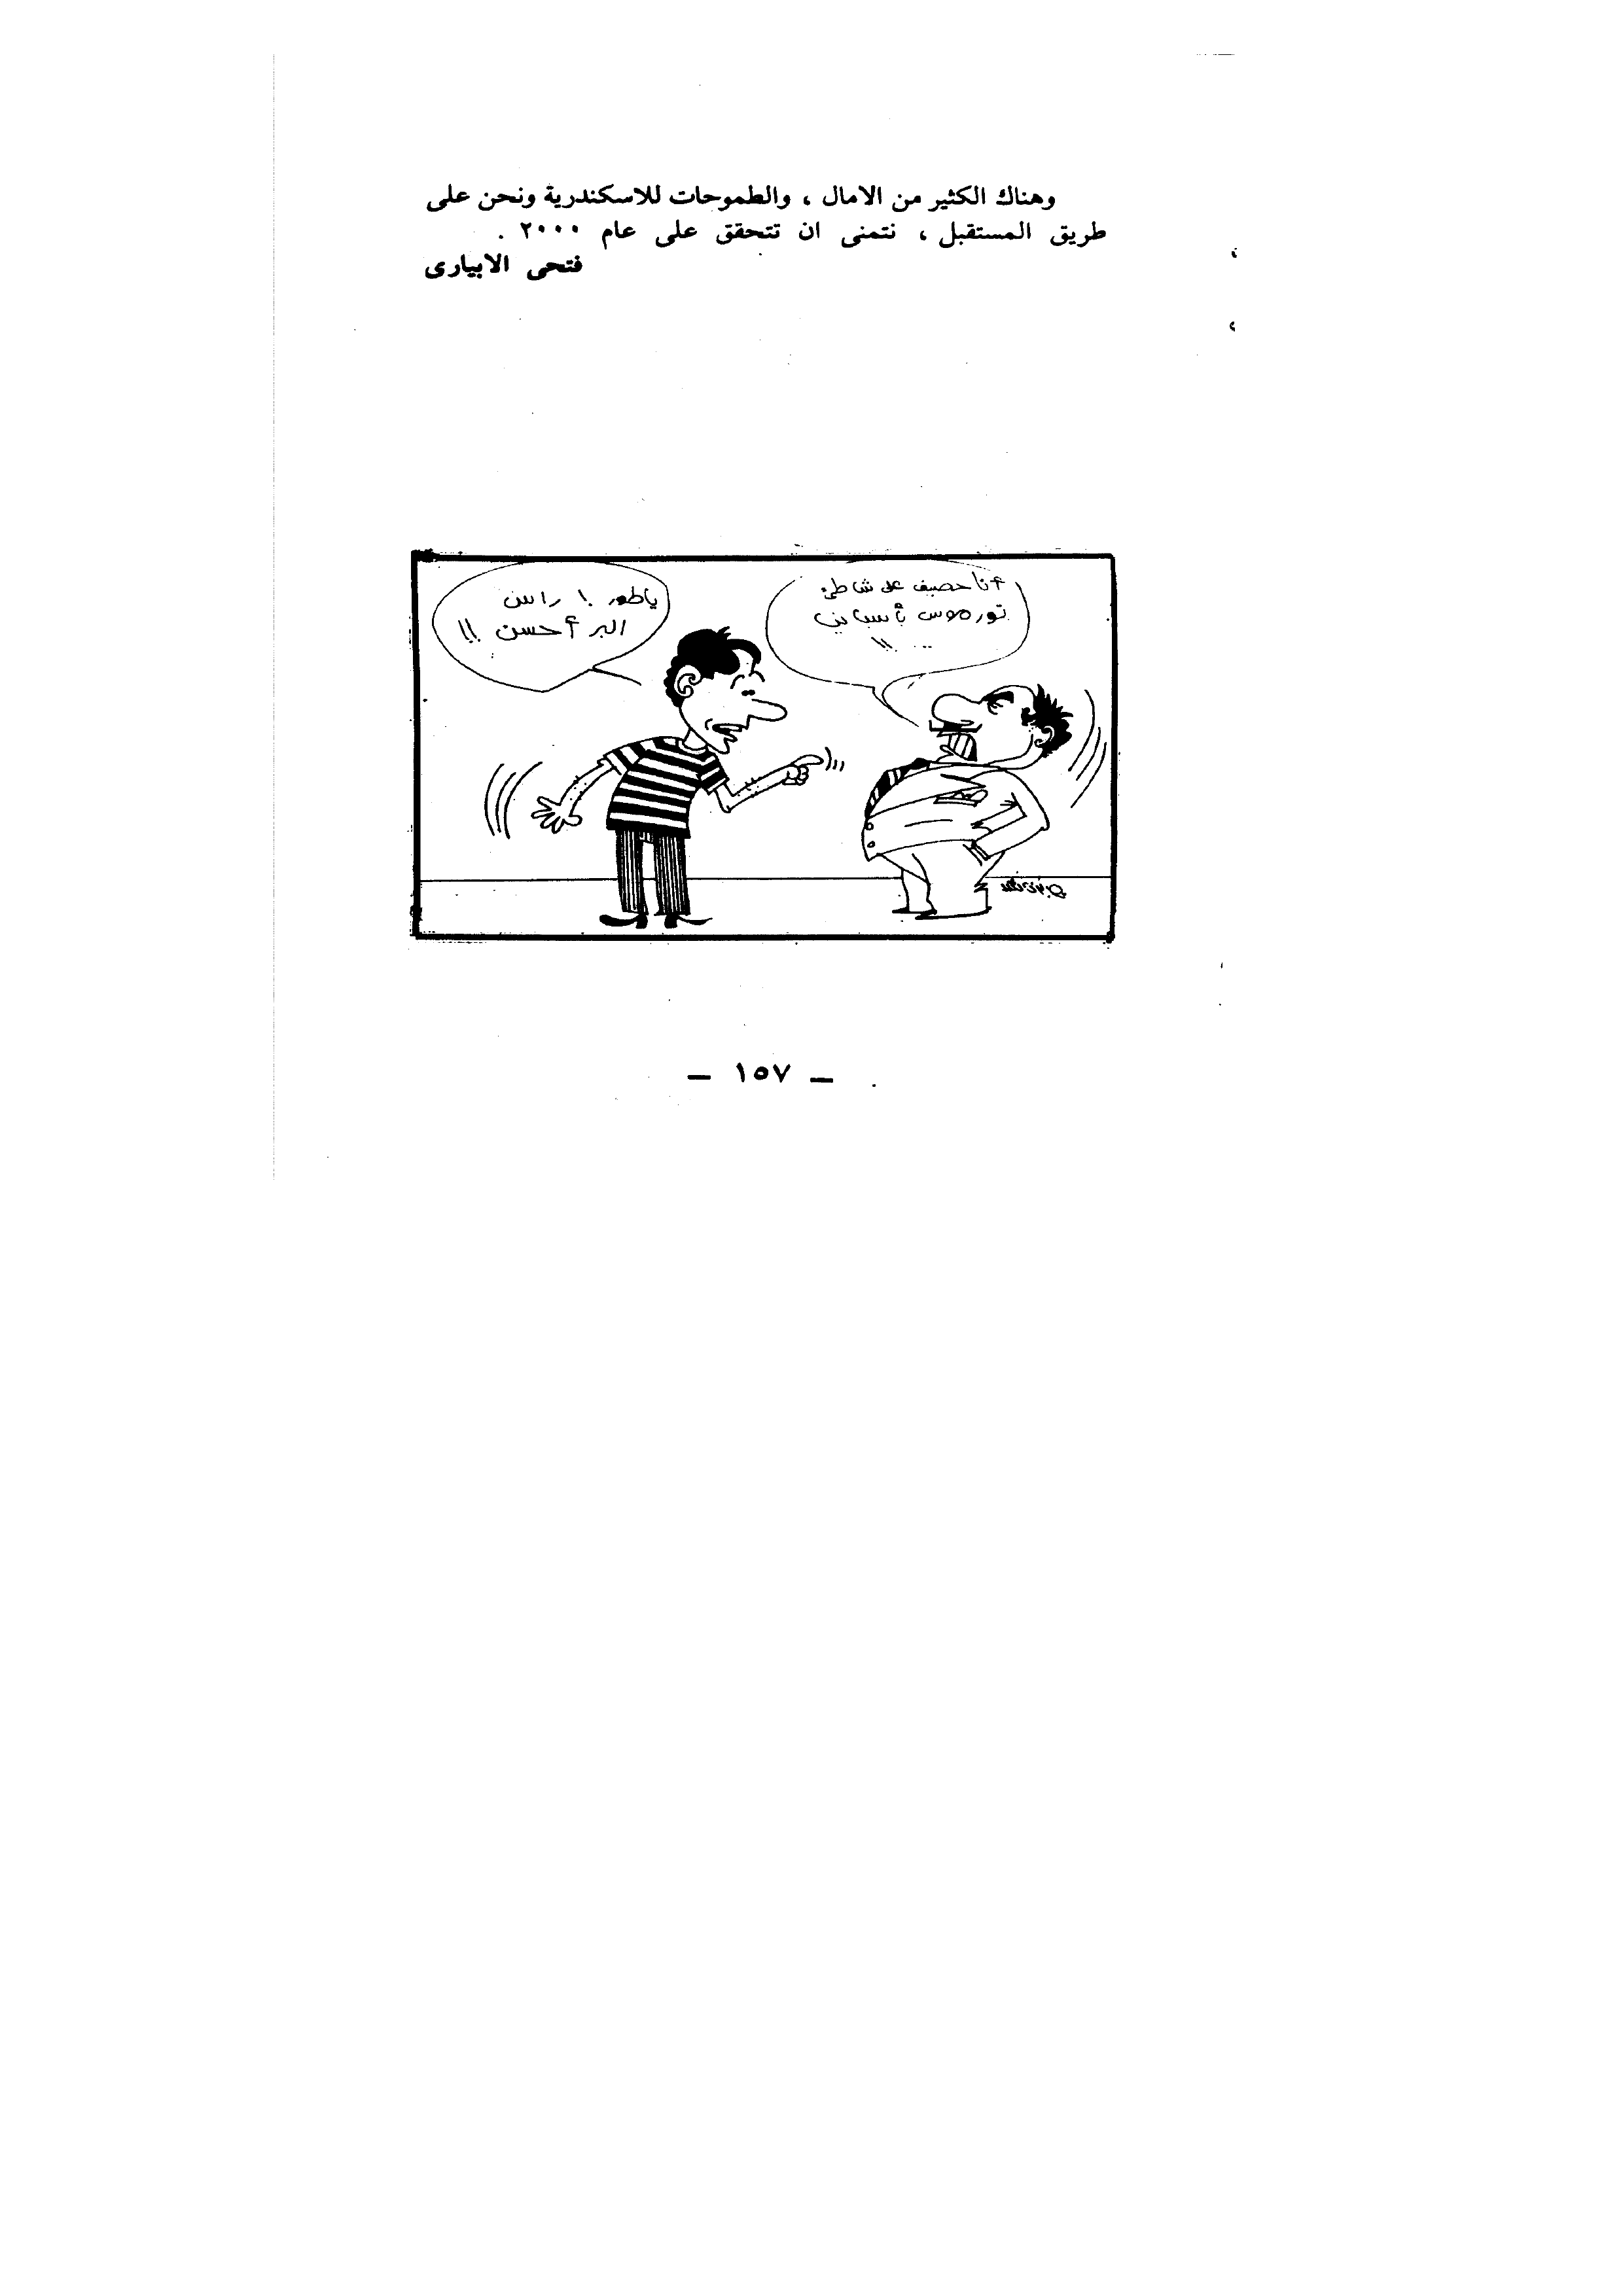 وهناك الكثير من الامال ، والطموحات للاسكندرية ونحن على
طريق المستقبل ، نتمنى ان تتحقق على عام ٢٠٠٠ .
فتحى الابيارى
أنا حصيف على شاطئ
تورموس بأسبانيا
... !!!
ياطور !. راس
البر أحسن !!
— ١٥٧ —